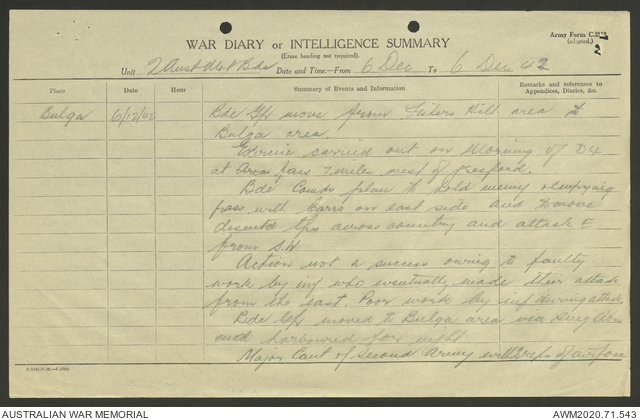 Army Form C.2118
(adapted.)
WAR DIARY or INTELLIGENCE SUMMARY
(Erase heading not required).
Unit 2 Aust Mot Bde Date and Time.—From 6 Dec To 6 Dec 42
Place Date Hour Summary of Events and Information Remarks and references to Appendices, Diaries, &c.
Bulga 6/12/42 Bde Gp move from Hill area to
Bulga area.
Exercise carried out on morning of D4
at Area pass 7 miles west of
Bde Comds plan to hold enemy occupying
pass with Carrs on east side and to move
dismtd tps across country and attack
from S.W
Action not a success owing to faulty
work by inf who eventually made their attack
from the east. Poor work by inf during attack.
Bde Gp moved to Bulga area via Singleton
and harboured for night.
Major Cant of Second Army with 2 reps of airforce
AUSTRALIAN WAR MEMORIAL
AWM2020.71.543